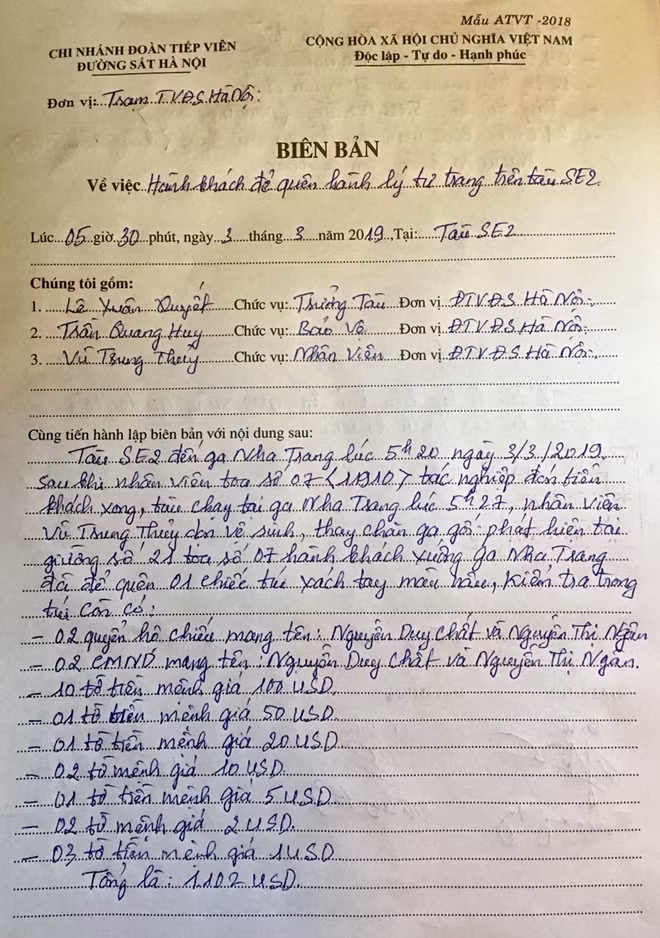 Mẫu ATVT -2018
CHI NHÁNH ĐOÀN TIẾP VIÊN
ĐƯỜNG SẮT HÀ NỘI
CỘNG HÒA XÃ HỘI CHỦ NGHĨA VIỆT NAM
Độc lập - Tự do - Hạnh phúc
Đơn vị: Trạm T.V.Đ.S Hà Nội:
BIÊN BẢN
Về việc Hành khách để quên hành lý tư trang trên tàu SE2.
Lúc 05 giờ 30 phút, ngày 3 tháng 3 năm 2019, Tại: Tàu SE2
Chúng tôi gồm:
1. Lê Xuân Quyết Chức vụ: Trưởng Tàu Đơn vị ĐTVĐS Hà Nội.
2. Trần Quang Huy Chức vụ: Bảo Vệ Đơn vị ĐTVĐS Hà Nội.
3. Vũ Trung Thuỷ Chức vụ: Nhân Viên Đơn vị ĐTVĐS Hà Nội.
Cùng tiến hành lập biên bản với nội dung sau:
Tàu SE2 đến ga Nha Trang lúc 5h20 ngày 3/3/2019.
sau khi nhân viên toa số 07 <11910> tác nghiệp đón tiễn
khách xong, tàu chạy tại ga Nha Trang lúc 5h27, nhân viên
Vũ Trung Thủy dọn vệ sinh, thay chăn ga, gối phát hiện tại
giường số 21 toa số 07 hành khách xuống ga Nha Trang
đã để quên 01 chiếc túi xách tay màu nâu, Kiểm tra trong
túi còn có:
- 02 quyển hộ chiếu mang tên: Nguyễn Duy Chất và Nguyễn Thị Ngân
- 02 CMND mang tên: Nguyễn Duy Chất và Nguyễn Thị Ngân.
- 10 tờ tiền mệnh giá 100 USD.
- 01 tờ tiền mệnh giá 50 USD.
- 01 tờ tiền mệnh giá 20 USD.
- 02 tờ mệnh giá 10 USD.
- 01 tờ tiền mệnh giá 5 USD
- 02 tờ mệnh giá 2 USD.
- 03 tờ tiền mệnh giá 1 USD
Tổng là: 1102 USD.